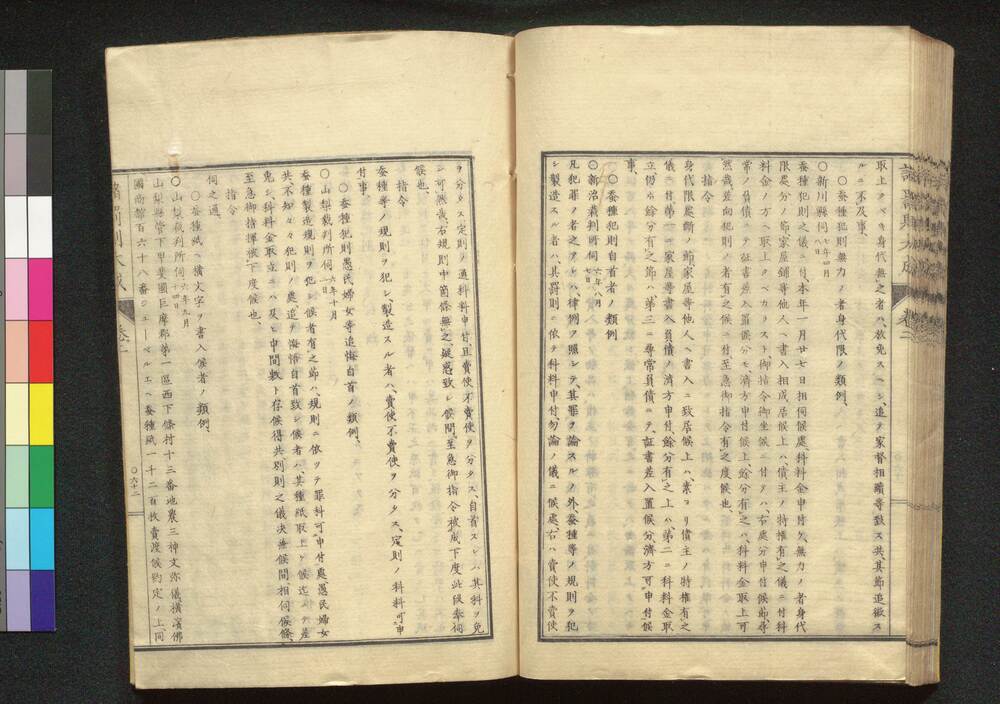 取上クベキ身代無之者ハ、放免スヘシ、追テ家督相續等致ス共、其節追徴ス
ルニ不及事、
〇蚕種犯則無力ノ者身代限ノ類例、
〇新川縣伺 七年四月八日
蚕種犯則之儀ニ付、本年一月廿七日相伺候處科料金申付ケ無力ノ者身代
限處分ノ節、家屋鋪等他人ヘ書入相成居候上ハ債主ノ特權有之儀ニ付科
料金ノ方ヘ取上クベカラスト御指令御坐候ニ付テハ、右處分申付候節、尋
常ノ負債ニテ証書差入置候分モ、濟方申付候上、餘分有之ハ、科料金取上可
然哉、差向犯則ノ者有之候ニ付、至急御指令有之度候也、
指令
身代限處断ノ節、家屋等他人ヘ書入ニ致居候上ハ、素ヨリ債主ノ特權有之
儀ニ付、第一ニ家屋等書入負債ノ濟方申付、餘分有之上ハ、第二ニ科料金取
立、仍ホ餘分有之節ハ、第三ニ尋常負債ニテ、証書差入置候分濟方可申付候
事、
〇蚕種犯則自首者ノ類例
〇新治裁判所伺 六年八月七日
凡犯罪ノ者之アレハ、律例ヲ照シテ、其罪ヲ論スルノ外、蚕種等ノ規則ヲ犯
シ製造スル者ハ、其罰則ニ依テ科料申付、勿論ノ儀ニ候處、右ハ賣使不賣使
ヲ分タス定則ノ通科料申付、且賣使不賣使ヲ分タス、自首スレハ其料ヲ免
シ可然哉、右規則中箇條無之、疑惑致シ候間、至急御指令被成下度此段奉伺
候也、
指令
蚕種等ノ規則ヲ犯シ、製造スル者ハ、賣使不賣使ヲ分タス、定則ノ科料可申
付事、
〇蚕種犯則愚民婦女等追悔自首ノ類例、
〇山梨裁判所伺 六年十月一日
蚕種製造規則ヲ犯シ候者有之節ハ、規則ニ依テ罪科可申付處愚民婦女
共不知々々犯則ノ處追テ悔悟自首致シ候者ハ、其種紙取上ケ候迄ニテ差
免シ、科料金取立ニハ及ヒ申間敷ト存候得共別則之儀决兼候間、相伺候條、
至急御指揮被下度候也、
指令
伺之通
〇蚕種紙ヘ横文字ヲ書入候者ノ類例、
〇山梨裁判所伺 六年九月十四日
山梨縣管下甲斐國巨摩郡第一區西下條村十三番地農三神文弥儀、横濱佛
國商館百六十八番ジユーベルエヘ蚕種紙一千二百枚賣渡候約定ノ上、同
〇六十二